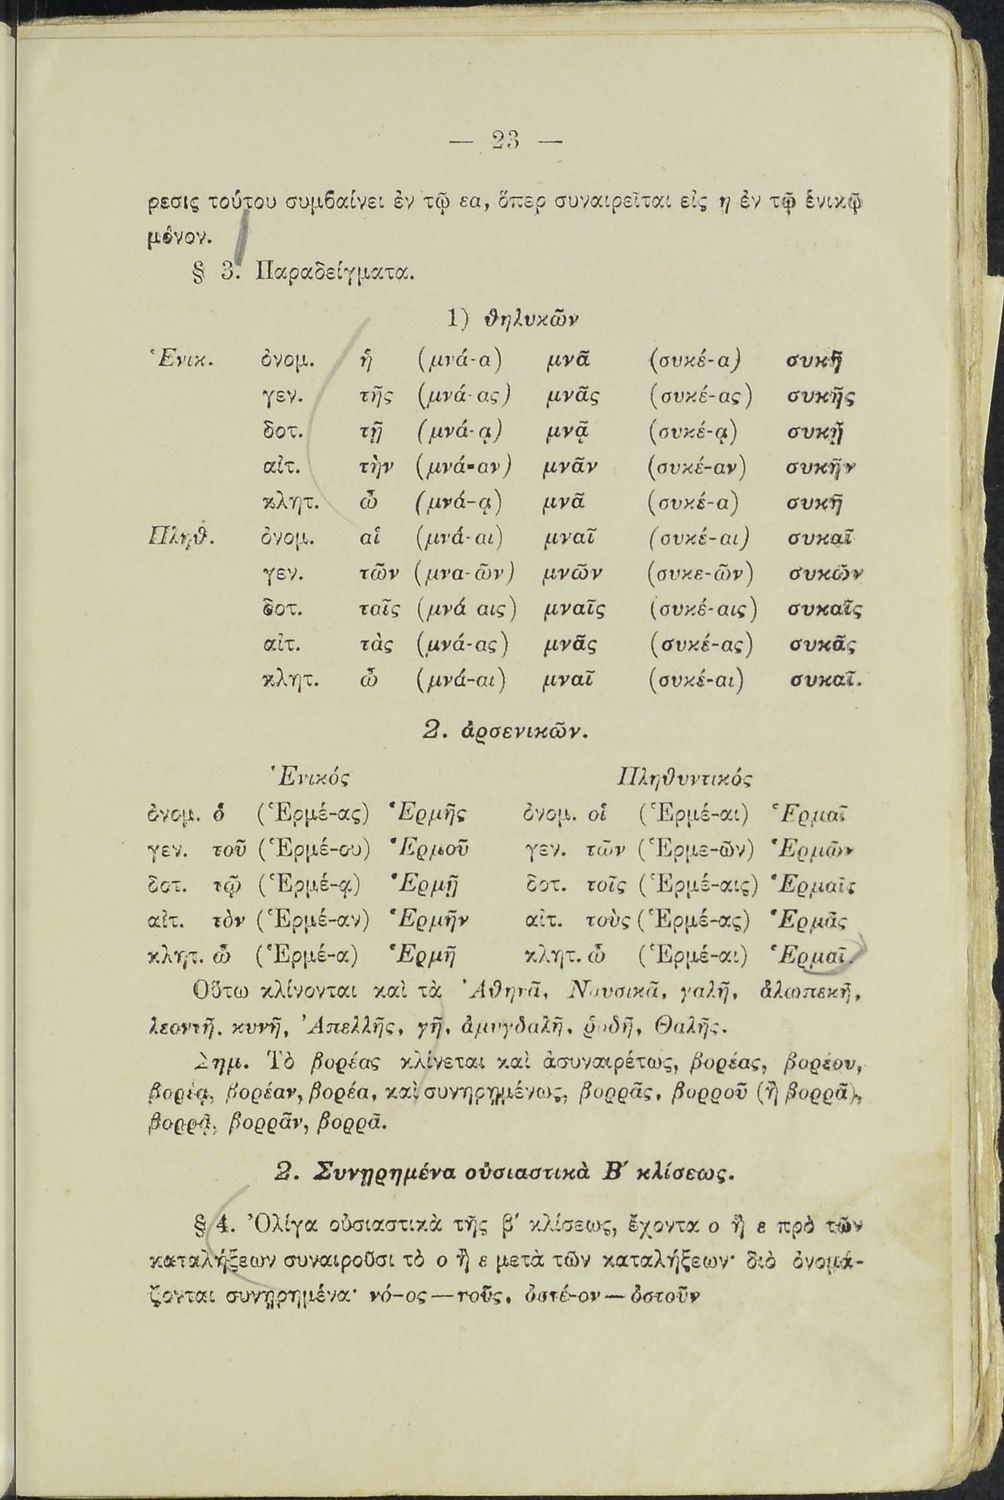 — 23 —
ρεσις τούτου συμβαίνει ἐν τῷ εα, ὅπερ συναιρεῖται εἰς η ἐν τῷ ἑνικῷ
μόνον.
§ 3. Παραδείγματα.
1) θηλυκῶν
Ἑνικ. ὀνομ. ἡ (μνά-α) μνᾶ (συκέ-α) συκῆ
γεν. τῆς (μνά-ας) μνᾶς (συκέ-ας) συκῆς
δοτ. τῇ (μνά-ᾳ) μνᾷ (συκέ-ᾳ) συκῇ
αἰτ. τὴν (μνά-αν) μνᾶν (συκέ-αν) συκῆν
κλητ. ὦ (μνά-ᾳ) μνᾶ (συκέ-α) συκῆ
Πληθ. ὀνομ. αἱ (μνά-αι) μναῖ (συκέ-αι) συκαῖ
γεν. τῶν (μνα-ῶν) μνῶν (συκε-ῶν) συκῶν
δοτ. ταῖς (μνά αις) μναῖς (συκέ-αις) συκαῖς
αἰτ. τὰς (μνά-ας) μνᾶς (συκέ-ας) συκᾶς
κλητ. ὦ (μνά-αι) μναῖ (συκέ-αι) συκαῖ.
2. ἀρσενικῶν.
Ἑνικός Πληθυντικός
ὀνομ. ὁ (Ἑρμέ-ας) Ἑρμῆς ὀνομ. οἱ (Ἑρμέ-αι) Ἑρμαῖ
γεν. τοῦ (Ἑρμέ-ου) Ἑρμοῦ γεν. τῶν (Ἑρμε-ῶν) Ἑρμῶν
δοτ. τῷ (Ἑρμέ-ᾳ) Ἑρμῇ δοτ. τοῖς (Ἑρμέ-αις) Ἑρμαῖς
αἰτ. τὸν (Ἑρμέ-αν) Ἑρμῆν αἰτ. τοὺς (Ἑρμέ-ας) Ἑρμᾶς
κλητ. ὦ (Ἑρμέ-α) Ἑρμῆ κλητ. ὦ (Ἑρμέ-αι) Ἑρμαῖ.
Οὕτω κλίνονται καὶ τὰ Ἀθηνᾶ, Ναυσικᾶ, γαλῆ, ἀλωπεκῆ,
λεοντῆ, κυνῆ, Ἀπελλῆς, γῆ, ἀμυγδαλῆ, ῥοδῆ, Θαλῆς.
Σημ. Τὸ βορέας κλίνεται καὶ ἀσυναιρέτως, βορέας, βορέου,
βορέᾳ, βορέαν, βορέα, καὶ συνῃρημένως, βορρᾶς, βορροῦ (ἢ βορρᾶ),
βορρᾷ, βορρᾶν, βορρᾶ.
2. Συνῃρημένα οὐσιαστικὰ Β′ κλίσεως.
§ 4. Ὀλίγα οὐσιαστικὰ τῆς β′ κλίσεως, ἔχοντα ο ἢ ε πρὸ τῶν
καταλήξεων συναιροῦσι τὸ ο ἢ ε μετὰ τῶν καταλήξεων· διὸ ὀνομά-
ζονται συνῃρημένα· νό-ος — νοῦς, ὀστέ-ον — ὀστοῦν